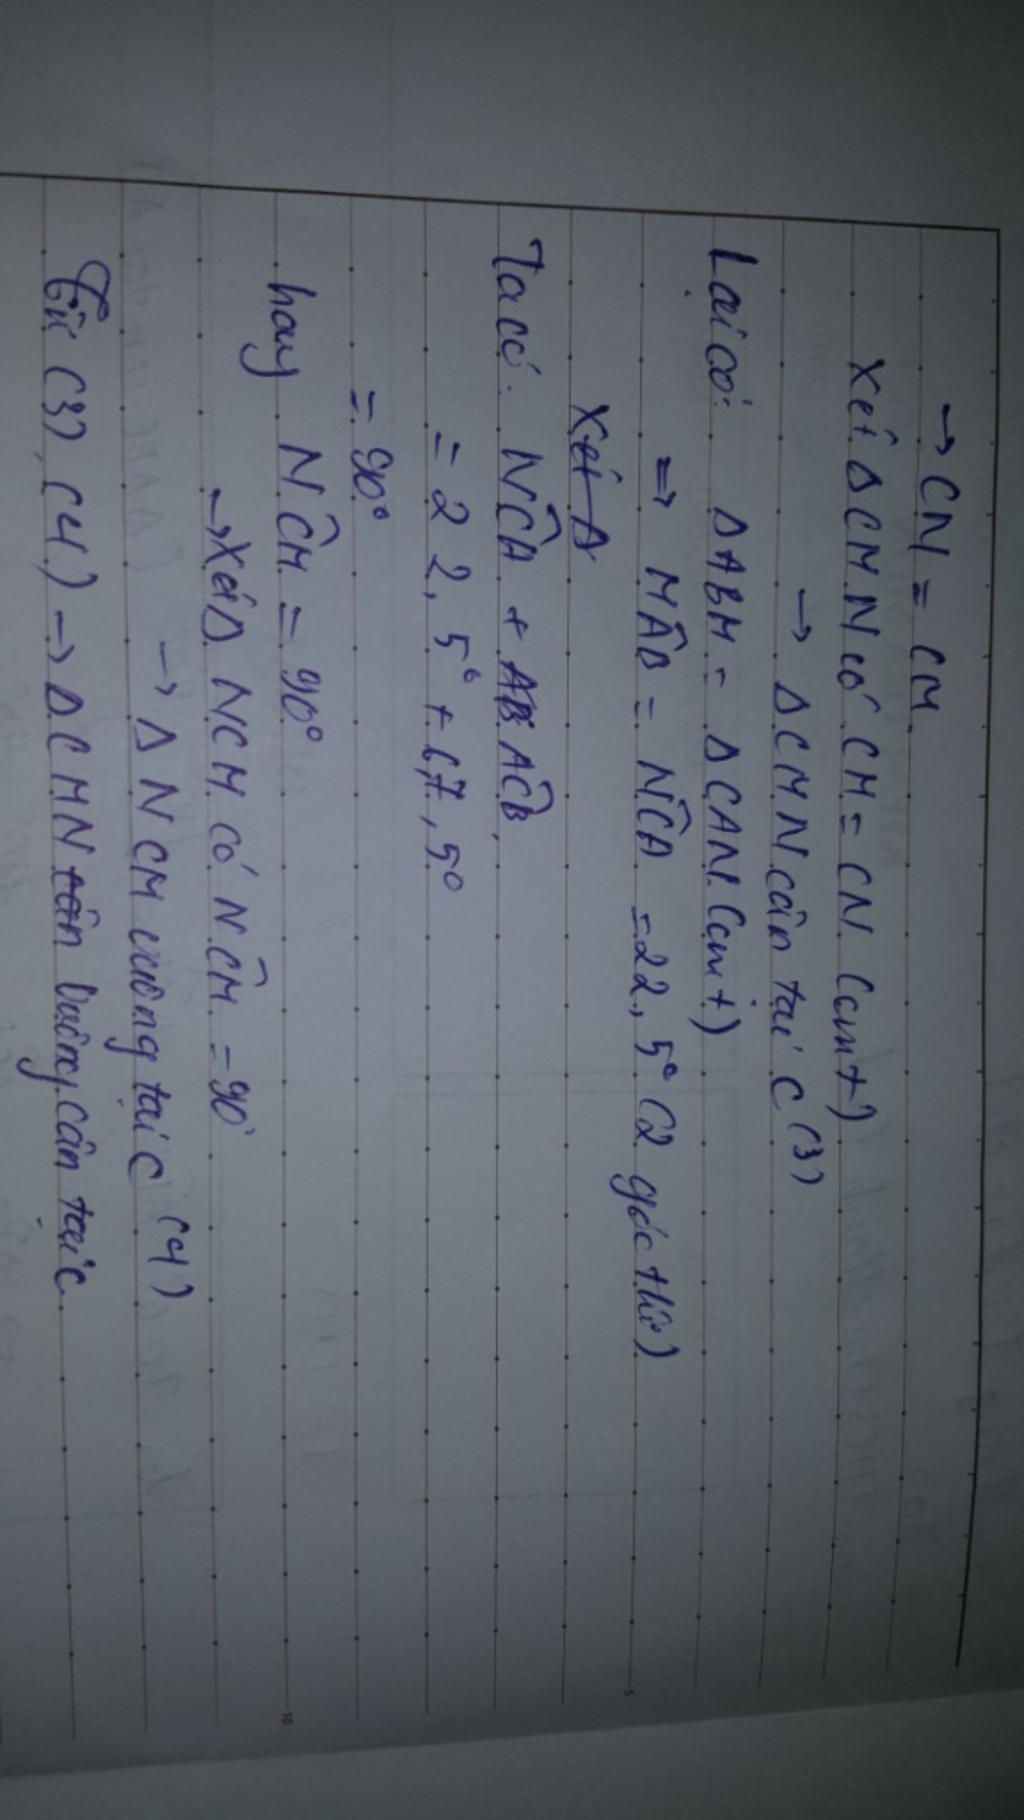 → CN = CM
Xét Δ CMN có CM = CN (cmt)
→ Δ CMN cân tại C (3)
Lại có: Δ ABM = Δ CAN (cmt)
⇒ MÂB = NĈA = 22,5° (2 góc t/ứ)
Xét Δ
Ta có: NĈA + AB AĈB
= 22,5° + 67,5°
= 90°
hay NĈM = 90°
→ Xét Δ NCM có NĈM = 90°
→ Δ NCM vuông tại C (4)
Từ (3), (4) → Δ CMN cân vuông cân tại C
5
10